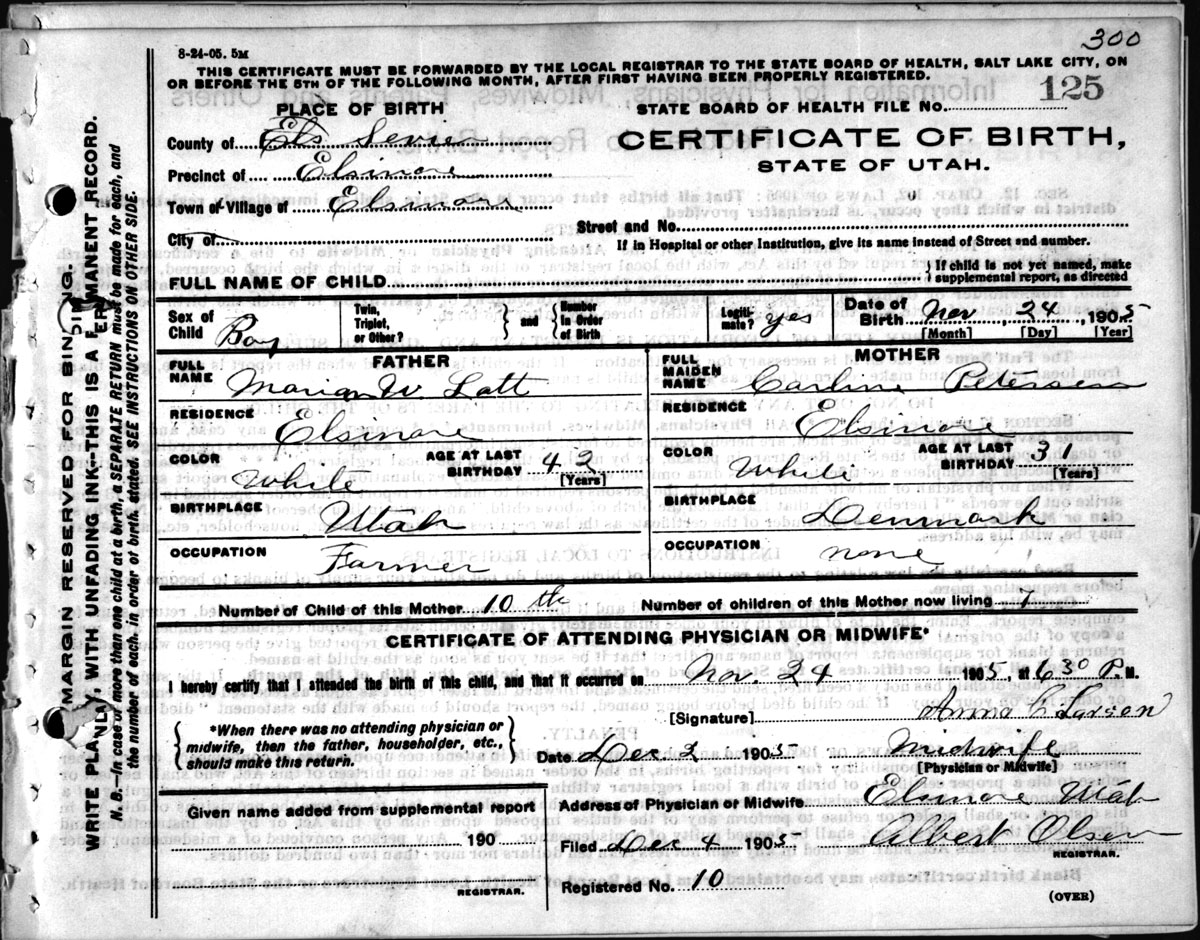 300
8-24-05. 5M
THIS CERTIFICATE MUST BE FORWARDED BY THE LOCAL REGISTRAR TO THE STATE BOARD OF HEALTH, SALT LAKE CITY, ON
OR BEFORE THE 5TH OF THE FOLLOWING MONTH, AFTER FIRST HAVING BEEN PROPERLY REGISTERED.
PLACE OF BIRTH
STATE BOARD OF HEALTH FILE No. 125
County of Els Sevier
CERTIFICATE OF BIRTH,
STATE OF UTAH.
Precinct of Elsinore
Town or Village of Elsinore
Street and No.
City of
If in Hospital or other Institution, give its name instead of Street and number.
FULL NAME OF CHILD
If child is not yet named, make
supplemental report, as directed
Sex of Child Boy
Twin, Triplet, or Other?
and
Number In Order of Birth
Legiti- mate? yes
Date of Birth Nov 24, 1905
[Month] [Day] [Year]
FATHER
FULL NAME Marion W Lott
RESIDENCE Elsinore
COLOR White
AGE AT LAST BIRTHDAY 42
[Years]
BIRTHPLACE Utah
OCCUPATION Farmer
MOTHER
FULL MAIDEN NAME Carline Petersen
RESIDENCE Elsinore
COLOR White
AGE AT LAST BIRTHDAY 31
(Years)
BIRTHPLACE Denmark
OCCUPATION none
Number of Child of this Mother 10th
Number of children of this Mother now living 7
CERTIFICATE OF ATTENDING PHYSICIAN OR MIDWIFE*
I hereby certify that I attended the birth of this child, and that it occurred on Nov. 24 1905, at 630 P. M.
*When there was no attending physician or
midwife, then the father, householder, etc.,
should make this return.
[Signature] Anna C Larsen
Date Dec 2 1905
Midwife
[Physician or Midwife]
Given name added from supplemental report
190
REGISTRAR.
Address of Physician or Midwife Elsinore Utah
Filed Dec 4 1905 Albert Olsen
REGISTRAR.
Registered No. 10
(OVER)
MARGIN RESERVED FOR BINDING.
WRITE PLAINLY, WITH UNFADING INK--THIS IS A PERMANENT RECORD.
N. B.--In case of more than one child at a birth, a SEPARATE RETURN must be made for each, and
the number of each, in order of birth, stated. SEE INSTRUCTIONS ON OTHER SIDE.